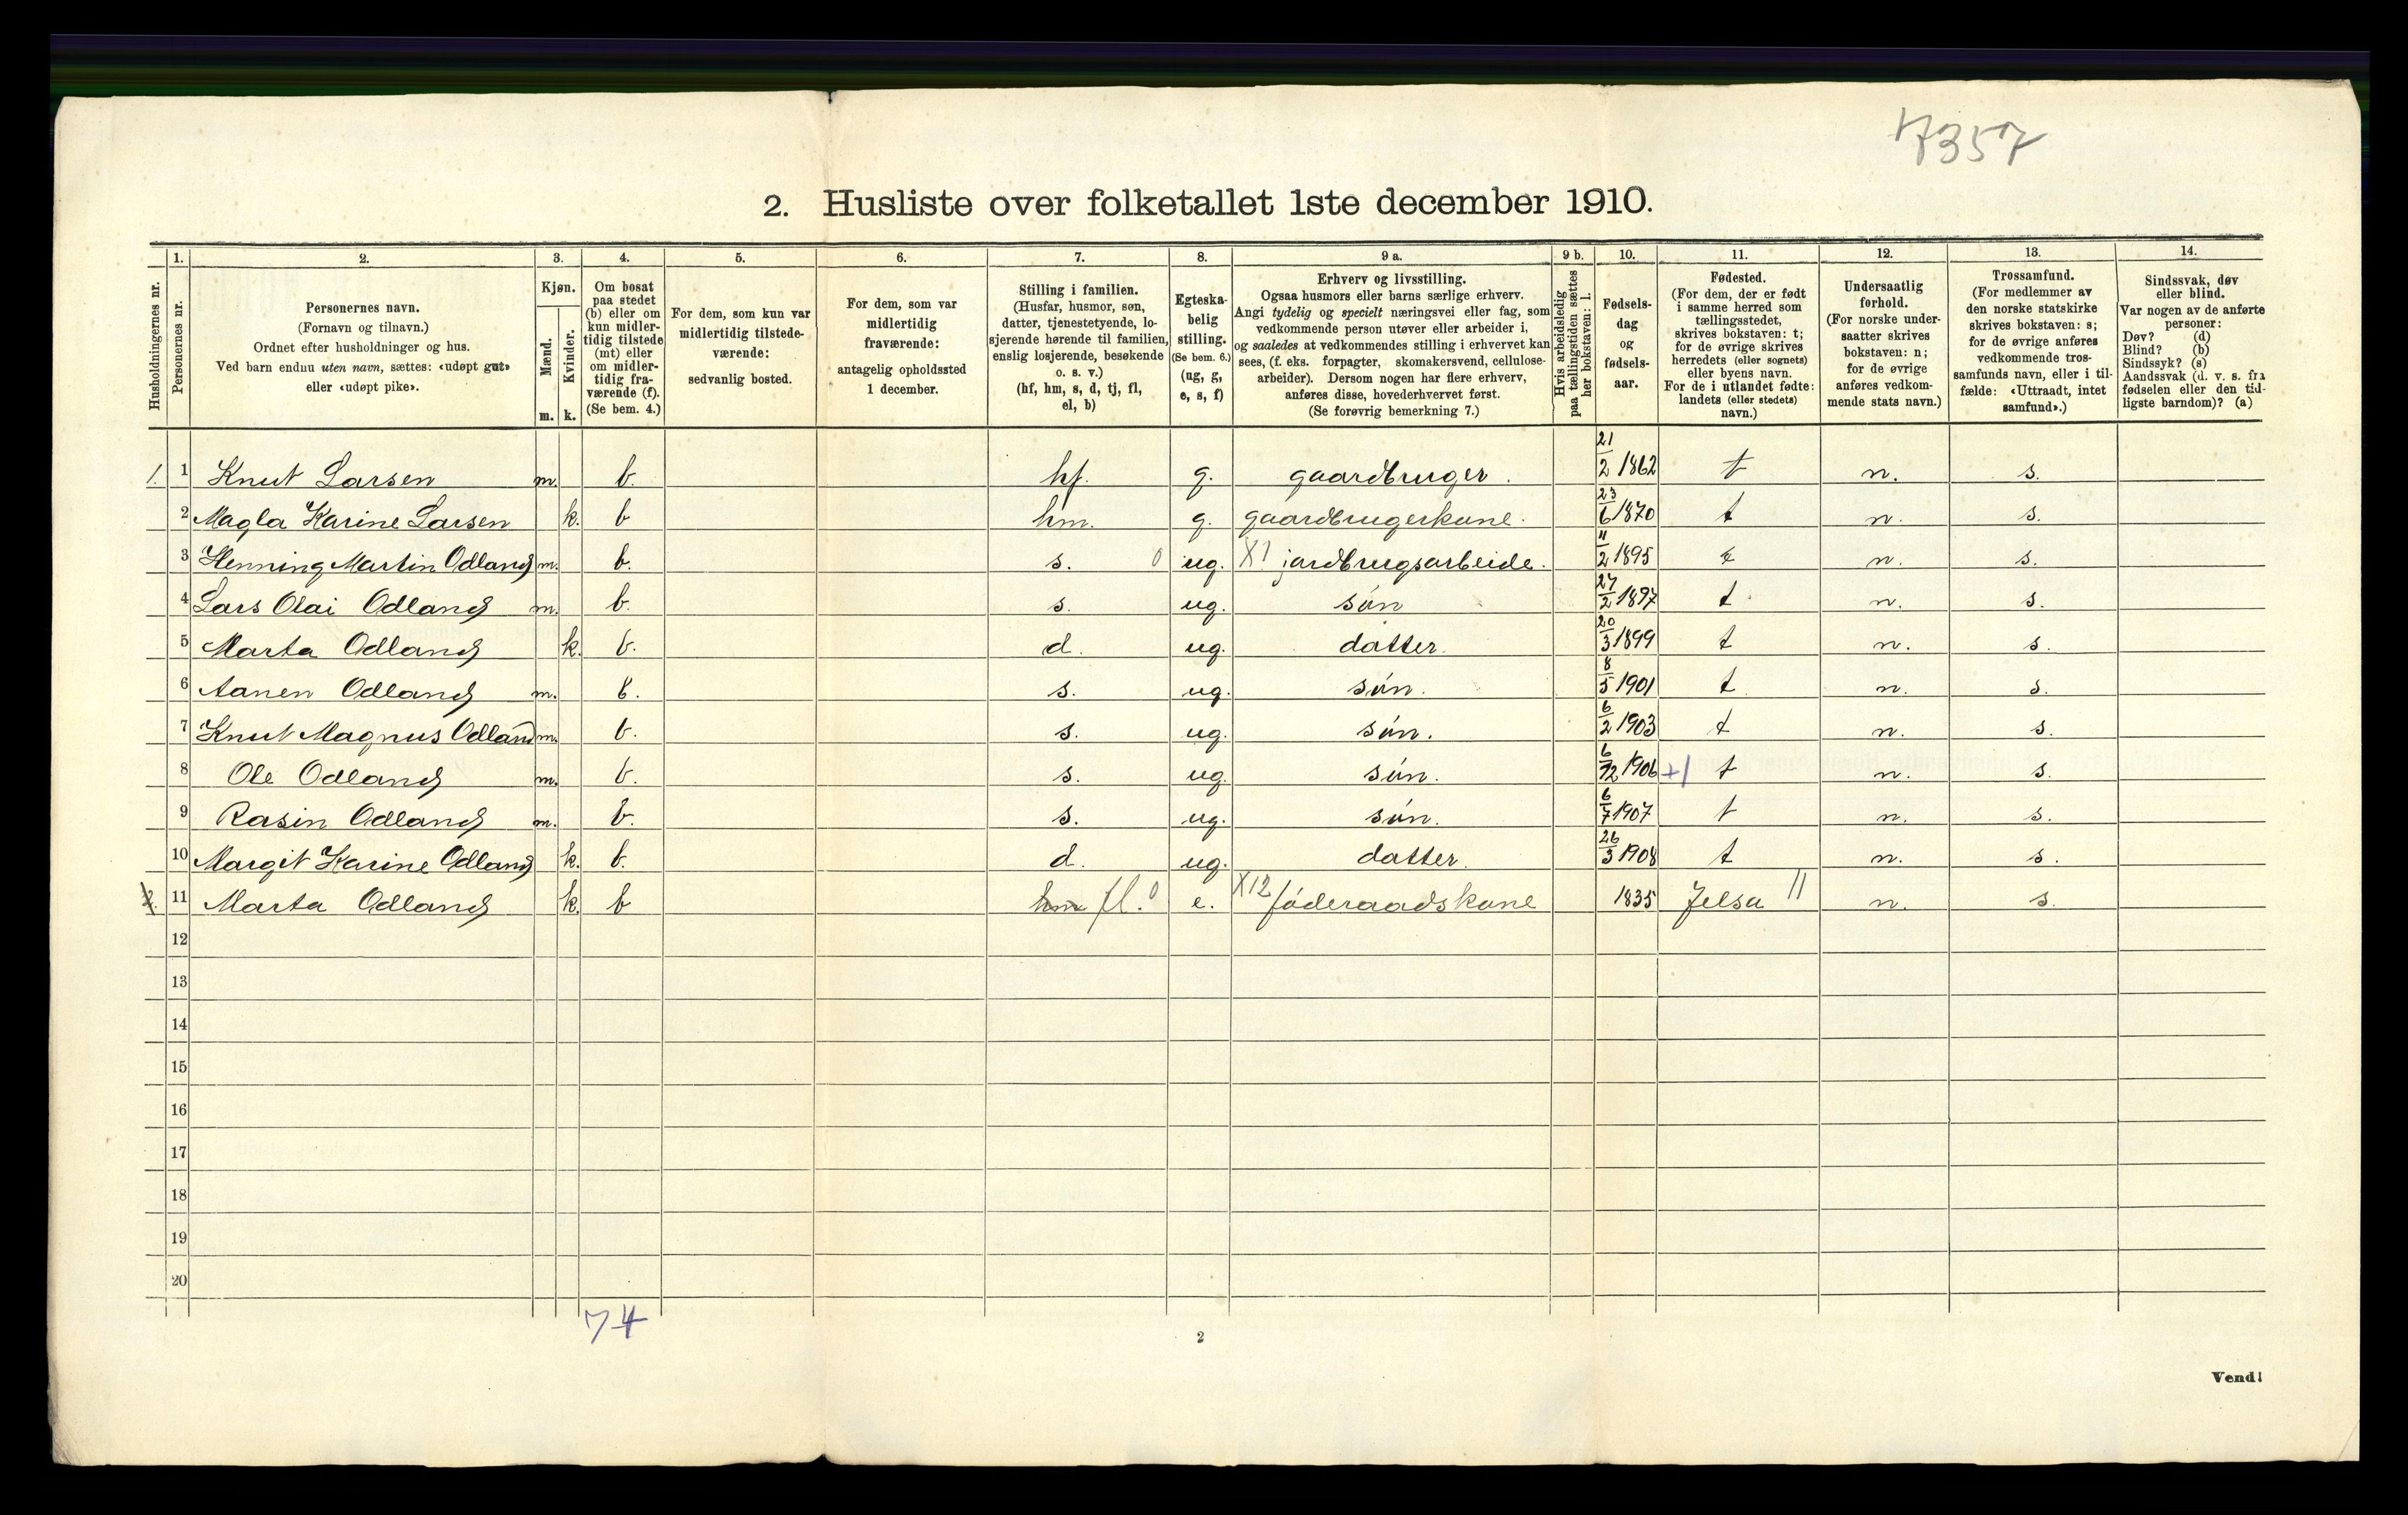 7357
2. Husliste over folketallet 1ste december 1910.
1. 2. 3. 4. 5. 6. 7. 8. 9 a. 9 b. 10. 11. 12. 13. 14.
Husholdningernes nr.
Personernes nr.
Personernes navn.
(Fornavn og tilnavn.)
Ordnet efter husholdninger og hus.
Ved barn endnu uten navn, sættes: «udøpt gut»
eller «udøpt pike».
Kjøn.
Mænd.
m.
Kvinder.
k.
Om bosat
paa stedet
(b) eller om
kun midler-
tidig tilstede
(mt) eller
om midler-
tidig fra-
værende (f).
(Se bem. 4.)
For dem, som kun var
midlertidig tilstede-
værende:
sedvanlig bosted.
For dem, som var
midlertidig
fraværende:
antagelig opholdssted
1 december.
Stilling i familien.
(Husfar, husmor, søn,
datter, tjenestetyende, lo-
sjerende hørende til familien,
enslig losjerende, besøkende
o. s. v.)
(hf, hm, s, d, tj, fl,
el, b)
Egteska-
belig
stilling.
(Se bem. 6.)
(ug, g,
e, s, f)
Erhverv og livsstilling.
Ogsaa husmors eller barns særlige erhverv.
Angi tydelig og specielt næringsvei eller fag, som
vedkommende person utøver eller arbeider i,
og saaledes at vedkommendes stilling i erhvervet kan
sees, (f. eks. forpagter, skomakersvend, cellulose-
arbeider). Dersom nogen har flere erhverv,
anføres disse, hovederhvervet først.
(Se forøvrig bemerkning 7.)
Hvis arbeidsledig
paa tællingstiden sættes
her bokstaven: l.
Fødsels-
dag
og
fødsels-
aar.
Fødested.
(For dem, der er født
i samme herred som
tællingsstedet,
skrives bokstaven: t;
for de øvrige skrives
herredets (eller sognets)
eller byens navn.
For de i utlandet fødte:
landets (eller stedets)
navn.)
Undersaatlig
forhold.
(For norske under-
saatter skrives
bokstaven: n;
for de øvrige
anføres vedkom-
mende stats navn.)
Trossamfund.
(For medlemmer av
den norske statskirke
skrives bokstaven: s;
for de øvrige anføres
vedkommende tros-
samfunds navn, eller i til-
fælde: «Uttraadt, intet
samfund».)
Sindssvak, døv
eller blind.
Var nogen av de anførte
personer:
Døv? (d)
Blind? (b)
Sindssyk? (s)
Aandssvak (d. v. s. fra
fødselen eller den tid-
ligste barndom)? (a)
1. 1 Knut Larsen m. b. hf. g. gaardbruger. 21/2 1862 t n. s.
2 Magla Karine Larsen k. b hm. g. gaardbrugerkone. 23/6 1870 t n. s.
3 Henning Martin Odland m. b. s. 0 ug. X1 jordbrugsarbeide. 11/2 1895 t n. s.
4 Lars Olai Odland m. b. s. ug. søn 27/2 1897 t n. s.
5 Marta Odland k. b. d. ug. datter. 20/3 1899 t n. s.
6 Aanen Odland m. b. s. ug. søn. 8/5 1901 t n. s.
7 Knut Magnus Odland m. b. s. ug. søn. 6/2 1903 t n. s.
8 Ole Odland m. b. s. ug. søn. 6/12 1906 +1 t n. s.
9 Rasin Odland m. b. s. ug. søn. 6/7 1907 t n. s.
10 Margit Karine Odland k. b. d. ug. datter. 26/3 1908 t n. s.
2. 11 Marta Odland k. b hm fl. 0 e. X12 føderaadskone 1835 Jelsa 11 n. s.
12
13
14
15
16
17
18
19
20
74
2
Vend!